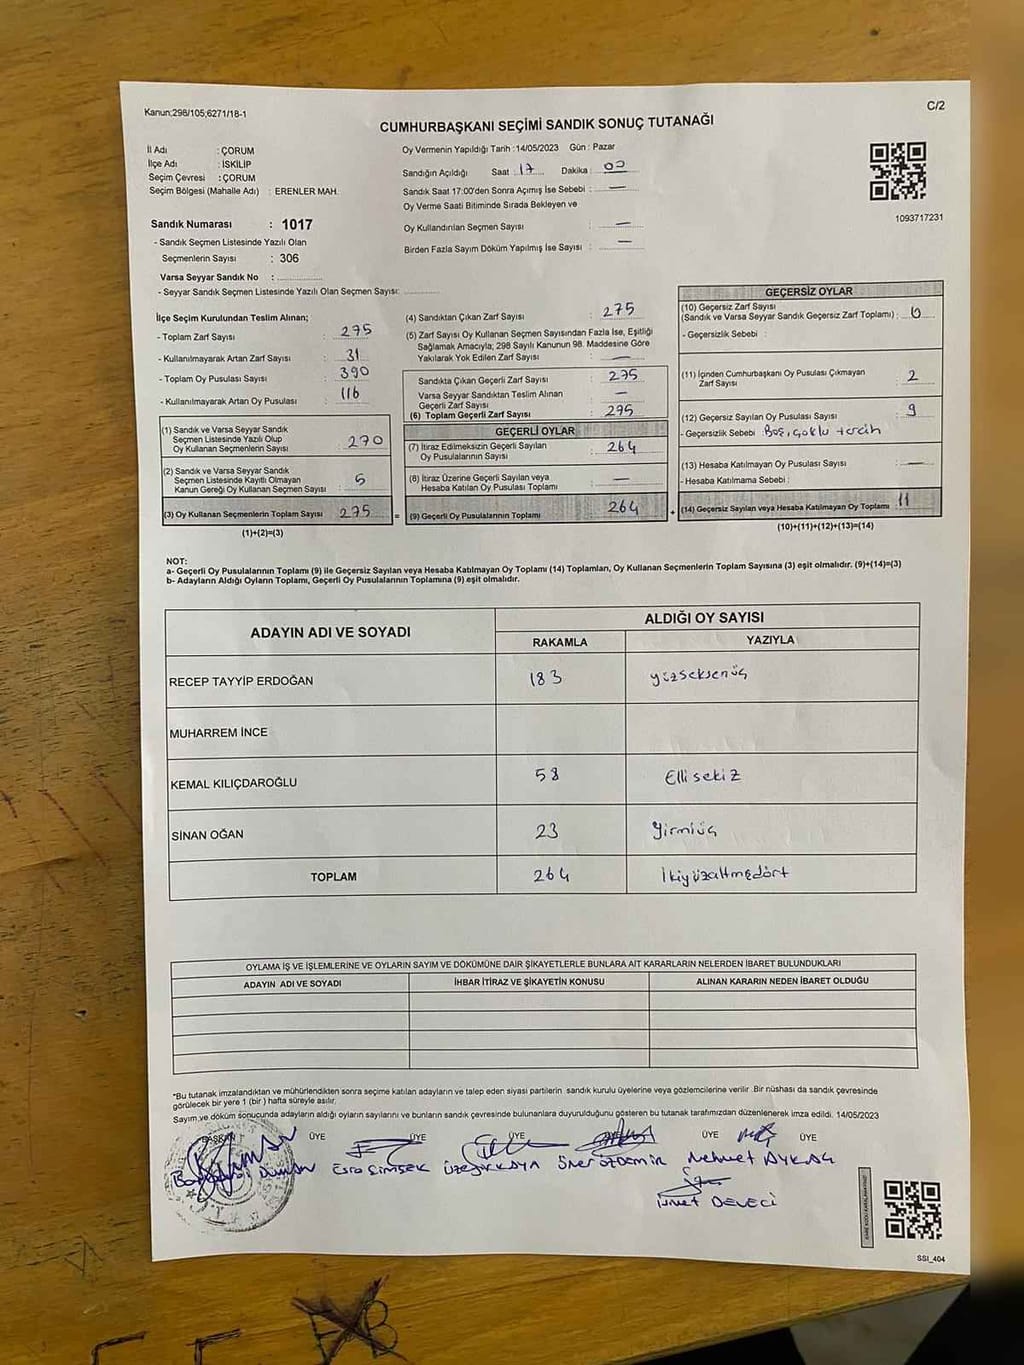 Kanun;298/105;6271/18-1
C/2
CUMHURBAŞKANI SEÇİMİ SANDIK SONUÇ TUTANAĞI
İl Adı : ÇORUM
İlçe Adı : İSKİLİP
Seçim Çevresi : ÇORUM
Seçim Bölgesi (Mahalle Adı) : ERENLER MAH.
Sandık Numarası : 1017
- Sandık Seçmen Listesinde Yazılı Olan
Seçmenlerin Sayısı : 306
Varsa Seyyar Sandık No :
- Seyyar Sandık Seçmen Listesinde Yazılı Olan Seçmen Sayısı:
Oy Vermenin Yapıldığı Tarih :14/05/2023 Gün : Pazar
Sandığın Açıldığı Saat : 17 Dakika : 00
Sandık Saat 17:00'den Sonra Açımış İse Sebebi : —
Oy Verme Saati Bitiminde Sırada Bekleyen ve
Oy Kullandırılan Seçmen Sayısı : —
Birden Fazla Sayım Döküm Yapılmış İse Sayısı : —
1093717231
İlçe Seçim Kurulundan Teslim Alınan;
- Toplam Zarf Sayısı : 275
- Kullanılmayarak Artan Zarf Sayısı : 31
- Toplam Oy Pusulası Sayısı : 390
- Kullanılmayarak Artan Oy Pusulası : 116
(1) Sandık ve Varsa Seyyar Sandık
Seçmen Listesinde Yazılı Olup
Oy Kullanan Seçmenlerin Sayısı : 270
(2) Sandık ve Varsa Seyyar Sandık
Seçmen Listesinde Kayıtlı Olmayan
Kanun Gereği Oy Kullanan Seçmen Sayısı : 5
(3) Oy Kullanan Seçmenlerin Toplam Sayısı 275
(1)+(2)=(3)
(4) Sandıktan Çıkan Zarf Sayısı : 275
(5) Zarf Sayısı Oy Kullanan Seçmen Sayısından Fazla İse, Eşitliği
Sağlamak Amacıyla; 298 Sayılı Kanunun 98. Maddesine Göre
Yakılarak Yok Edilen Zarf Sayısı : —
Sandıkta Çıkan Geçerli Zarf Sayısı : 275
Varsa Seyyar Sandıktan Teslim Alınan
Geçerli Zarf Sayısı : —
(6) Toplam Geçerli Zarf Sayısı : 275
GEÇERLİ OYLAR
(7) İtiraz Edilmeksizin Geçerli Sayılan
Oy Pusulalarının Sayısı : 264
(8) İtiraz Üzerine Geçerli Sayılan veya
Hesaba Katılan Oy Pusulası Toplamı : —
= (9) Geçerli Oy Pusulalarının Toplamı 264
GEÇERSİZ OYLAR
(10) Geçersiz Zarf Sayısı
(Sandık ve Varsa Seyyar Sandık Geçersiz Zarf Toplamı) : 0
- Geçersizlik Sebebi :
(11) İçinden Cumhurbaşkanı Oy Pusulası Çıkmayan
Zarf Sayısı : 2
(12) Geçersiz Sayılan Oy Pusulası Sayısı : 9
- Geçersizlik Sebebi : Boş, çoklu tercih
(13) Hesaba Katılmayan Oy Pusulası Sayısı : —
- Hesaba Katılmama Sebebi :
+ (14) Geçersiz Sayılan veya Hesaba Katılmayan Oy Toplamı 11
(10)+(11)+(12)+(13)=(14)
NOT:
a- Geçerli Oy Pusulalarının Toplamı (9) ile Geçersiz Sayılan veya Hesaba Katılmayan Oy Toplamı (14) Toplamları, Oy Kullanan Seçmenlerin Toplam Sayısına (3) eşit olmalıdır. (9)+(14)=(3)
b- Adayların Aldığı Oyların Toplamı, Geçerli Oy Pusulalarının Toplamına (9) eşit olmalıdır.
ADAYIN ADI VE SOYADI
ALDIĞI OY SAYISI
RAKAMLA YAZIYLA
RECEP TAYYİP ERDOĞAN 183 yüzseksenüç
MUHARREM İNCE
KEMAL KILIÇDAROĞLU 58 Elli sekiz
SİNAN OĞAN 23 yirmiüç
TOPLAM 264 İkiyüzaltmışdört
OYLAMA İŞ VE İŞLEMLERİNE VE OYLARIN SAYIM VE DÖKÜMÜNE DAİR ŞİKAYETLERLE BUNLARA AİT KARARLARIN NELERDEN İBARET BULUNDUKLARI
ADAYIN ADI VE SOYADI İHBAR İTİRAZ VE ŞİKAYETİN KONUSU ALINAN KARARIN NEDEN İBARET OLDUĞU
*Bu tutanak imzalandıktan ve mühürlendikten sonra seçime katılan adayların ve talep eden siyasi partilerin sandık kurulu üyelerine veya gözlemcilerine verilir. Bir nüshası da sandık çevresinde
görülecek bir yere 1 (bir ) hafta süreyle asılır.
Sayım ve döküm sonucunda adayların aldığı oyların sayılarını ve bunların sandık çevresinde bulunanlara duyurulduğunu gösteren bu tutanak tarafımızdan düzenlenerek imza edildi. 14/05/2023
BAŞKAN ÜYE ÜYE ÜYE ÜYE ÜYE
Esra ŞİMŞEK
Öner ÖZDEMİR Mehmet AYKAÇ
DEVECİ
SSI_404